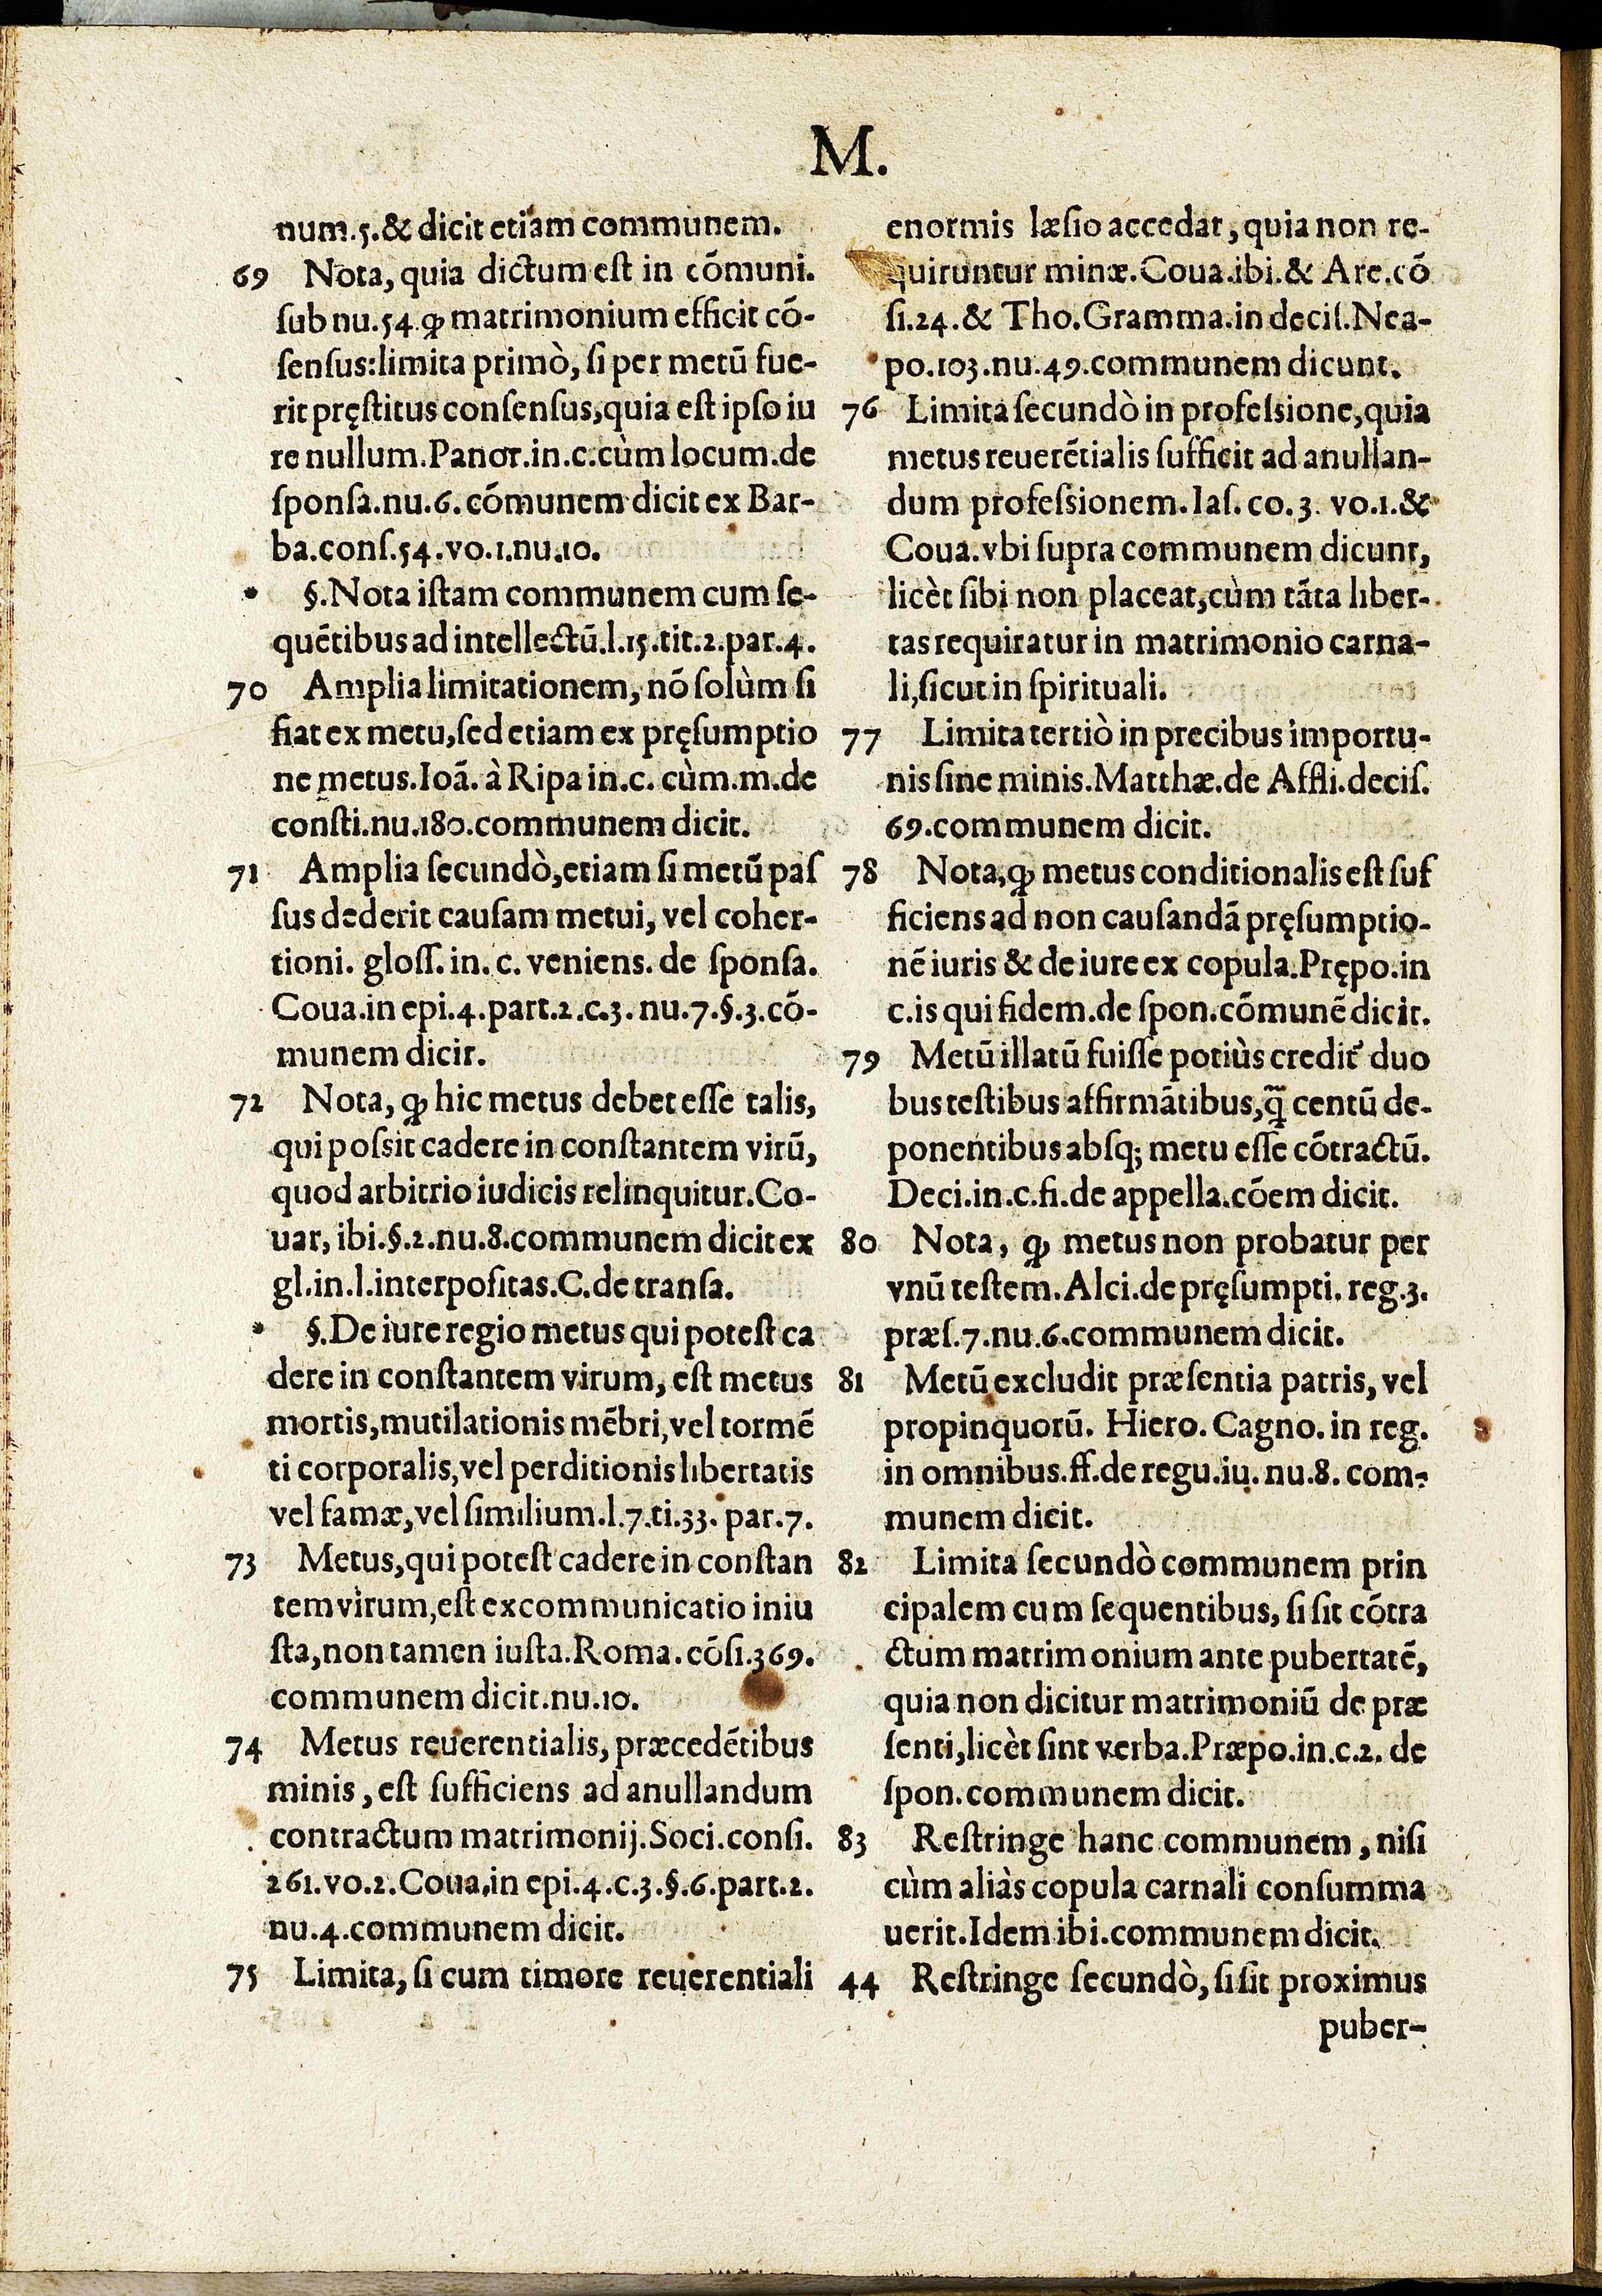 M.
num.5.& dicit etiam communem.
69 Nota, quia dictum eſt in cõmuni.
ſub nu.54.ꝙ matrimonium efficit cõ-
ſenſus:limita primò, ſi per metũ fue-
rit pręſtitus conſenſus,quia eſt ipſo iu
re nullum.Panor.in.c.cùm locum.de
ſponſa.nu.6.cõmunem dicit ex Bar-
ba.conſ.54.vo.1.nu.10.
• §.Nota iſtam communem cum ſe-
quẽtibus ad intellectũ.l.15.tit.2.par.4.
70 Amplia limitationem, nõ ſolùm ſi
fiat ex metu,ſed etiam ex pręſumptio
ne metus.Ioã. à Ripa in.c. cùm.m.de
conſti.nu.180.communem dicit.
71 Amplia ſecundò,etiam ſi metũ paſ
ſus dederit cauſam metui, vel coher-
tioni. gloſſ. in. c. veniens. de ſponſa.
Coua.in epi.4.part.2.c.3. nu.7.§.3.cõ-
munem dicit.
72 Nota, ꝙ hic metus debet eſſe talis,
qui poſsit cadere in conſtantem virũ,
quod arbitrio iudicis relinquitur.Co-
uar, ibi.§.2.nu.8.communem dicit ex
gl.in.l.interpoſitas.C.de tranſa.
• §.De iure regio metus qui poteſt ca
dere in conſtantem virum, eſt metus
mortis,mutilationis mẽbri,vel tormẽ
ti corporalis,vel perditionis libertatis
vel famæ,vel ſimilium.l.7.ti.33. par.7.
73 Metus,qui poteſt cadere in conſtan
tem virum,eſt excommunicatio iniu
ſta,non tamen iuſta.Roma.cõſi.369.
communem dicit.nu.10.
74 Metus reuerentialis, præcedẽtibus
minis, eſt ſufficiens ad anullandum
contractum matrimonij.Soci.conſi.
261.vo.2.Coua,in epi.4.c.3.§.6.part.2.
nu.4.communem dicit.
75 Limita, ſi cum timore reuerentiali
enormis læſio accedat, quia non re-
quiruntur minæ.Coua.ibi.& Are.cõ
ſi.24.& Tho.Gramma.in deciſ.Nea-
po.103.nu.49.communem dicunt.
76 Limita ſecundò in profeſsione,quia
metus reuerẽtialis ſufficit ad anullan-
dum profeſsionem.Iaſ. co.3. vo.1.&
Coua.vbi ſupra communem dicunt,
licèt ſibi non placeat,cùm tãta liber-
tas requiratur in matrimonio carna-
li,ſicut in ſpirituali.
77 Limita tertiò in precibus importu-
nis ſine minis.Matthæ.de Affli.deciſ.
69.communem dicit.
78 Nota,ꝙ metus conditionalis eſt ſuf
ficiens ad non cauſandã pręſumptio-
nẽ iuris & de iure ex copula.Prępo.in
c.is qui fidem.de ſpon.cõmunẽ dicit.
79 Metũ illatũ fuiſſe potiùs credit᷑ duo
bus teſtibus affirmãtibus,q̃ centũ de-
ponentibus abſq; metu eſſe cõtractũ.
Deci.in.c.fi.de appella.cõem dicit.
80 Nota, ꝙ metus non probatur per
vnũ teſtem.Alci.de pręſumpti. reg.3.
præſ.7.nu.6.communem dicit.
81 Metũ excludit præſentia patris, vel
propinquorũ. Hiero. Cagno. in reg.
in omnibus.ff.de regu.iu. nu.8. com-
munem dicit.
82 Limita ſecundò communem prin
cipalem cum ſequentibus, ſi ſit cõtra
ctum matrim onium ante pubertatẽ,
quia non dicitur matrimoniũ de præ
ſenti,licèt ſint verba.Præpo.in.c.2. de
ſpon.communem dicit.
83 Reſtringe hanc communem, niſi
cùm aliàs copula carnali conſumma
uerit.Idem ibi.communem dicit.
44 Reſtringe ſecundò, ſi ſit proximus
puber-